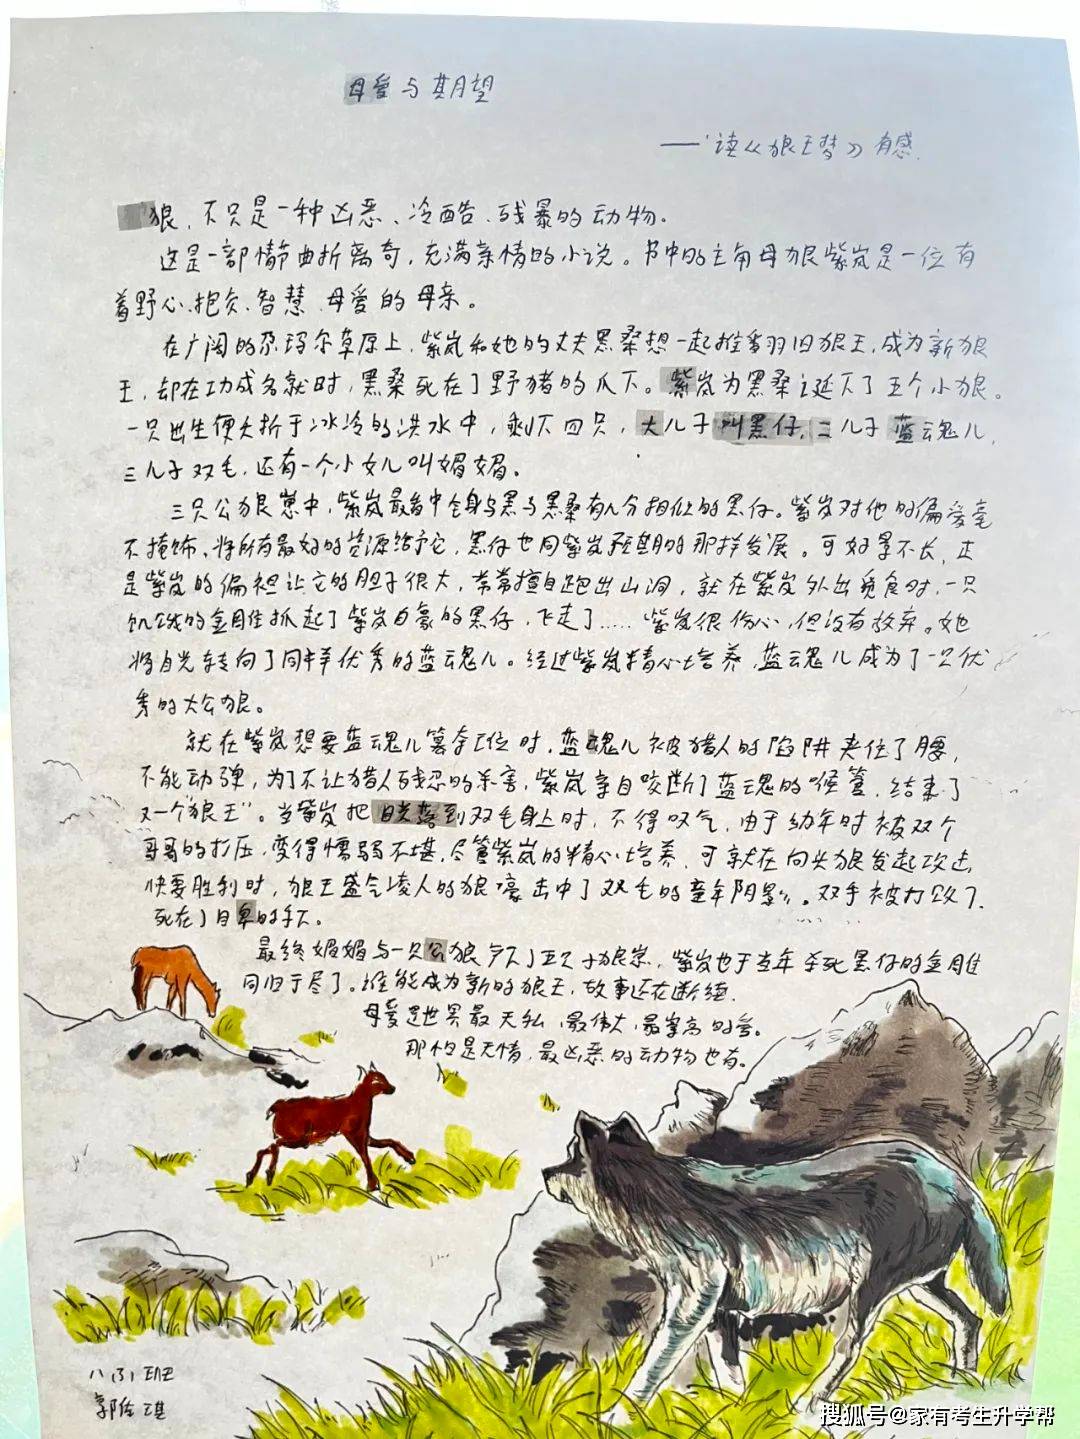 母爱与期望
——读《狼王梦》有感.
狼、不只是一种凶恶、冷酷、残暴的动物。
这是一部情节曲折离奇,充满亲情的小说。书中的主角母狼紫岚是一位有
着野心、抱负、智慧、母爱的母亲。
在广阔的尕玛尔草原上,紫岚和她的丈夫黑桑想一起推翻旧狼王,成为新狼
王,却在功成名就时,黑桑死在了野猪的爪下。紫岚为黑桑诞下了五个小狼。
一只出生便夭折于冰冷的洪水中,剩下四只,大儿子叫黑仔,二儿子蓝魂儿,
三儿子双毛,还有一个小女儿叫媚媚。
三只公狼崽中,紫岚最看中全身乌黑与黑桑有八分相似的黑仔。紫岚对他的偏爱毫
不掩饰、将所有最好的资源给予它,黑仔也同紫岚预期的那样发展。可好景不长,正
是紫岚的偏袒让它的胆子很大,常常擅自跑出山洞,就在紫岚外出觅食时,一只
饥饿的金雕抓起了紫岚自豪的黑仔,飞走了……紫岚很伤心,但没有放弃。她
将目光转向了同样优秀的蓝魂儿。经过紫岚精心培养,蓝魂儿成为了一只优
秀的大公狼。
就在紫岚想要蓝魂儿篡夺王位时,蓝魂儿被猎人的陷阱夹住了腰,
不能动弹,为了不让猎人残忍的杀害,紫岚亲自咬断了蓝魂的喉管,结束了
又一个“狼王”。当紫岚把目光落到双毛身上时,不得叹气,由于幼年时被双个
哥哥的打压,变得懦弱不堪,尽管紫岚的精心培养,可就在向头狼发起攻击
快要胜利时,狼王盛气凌人的狼嚎击中了双毛的童年阴影。双手被打败了,
死在了自卑的手下。
最终媚媚与一只公狼产下了五只小狼崽,紫岚也于当年杀死黑仔的金雕
同归于尽了。谁能成为新的狼王,故事还在断续.
母爱是世界最无私,最伟大,最崇高的爱。
那怕是无情,最凶恶的动物也有。
八(3)班
郭
琪
搜狐号@家有考生升学帮